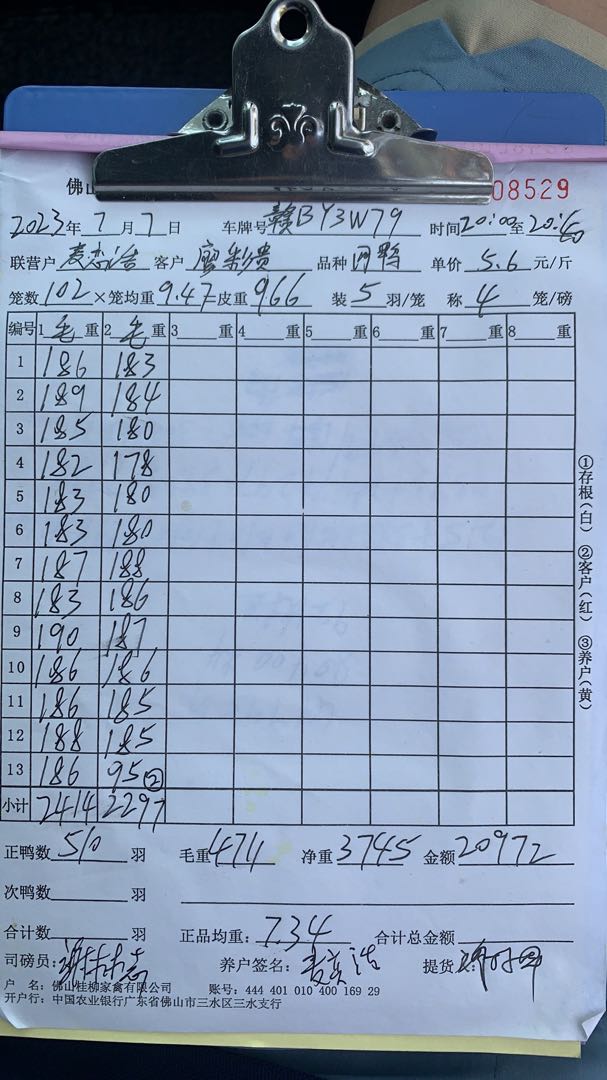 佛山
08529
2023年7月7日 车牌号赣BY3W79 时间20:00至20:40
联营户 客户 廖彩贵 品种 单价5.6元/斤
笼数102×笼均重9.47=皮重966 装5羽/笼 称4笼/磅
编号 1毛重 2毛重 3重 4重 5重 6重 7重 8重
1 186 183
2 189 184
3 185 180
4 182 178
5 183 180
6 183 180
7 187 188
8 183 186
9 190 187
10 186 186
11 186 185
12 188 185
13 186 95②
小计 2414 2297
正鸭数510羽 毛重4711 净重3745 金额20972
次鸭数羽
合计数羽 正品均重:7.34 合计总金额
司磅员: 养户签名: 提货
户 名:佛山桂柳家禽有限公司 账号:444 401 010 400 169 29
开户行:中国农业银行广东省佛山市三水区三水支行
①存根(白) ②客户(红) ③养户(黄)